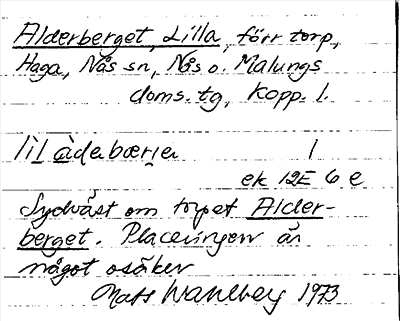 Alderberget, Lilla, förr torp,
Haga, Nås sn, Nås o. Malungs
doms. tg, Kopp. l.
lìl àdebærjer l
ek 12E 6 e
Sydväst om torpet Alder-
berget. Placeringen är
något osäker
Mats Wahlberg 1973